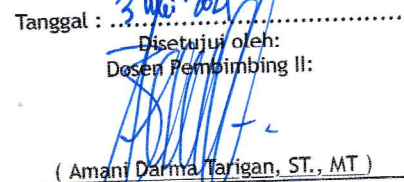 Tanggal : 3 Mei
Disetujui oleh:
Dosen Pembimbing II:
( Amani Darma Tarigan, ST., MT )